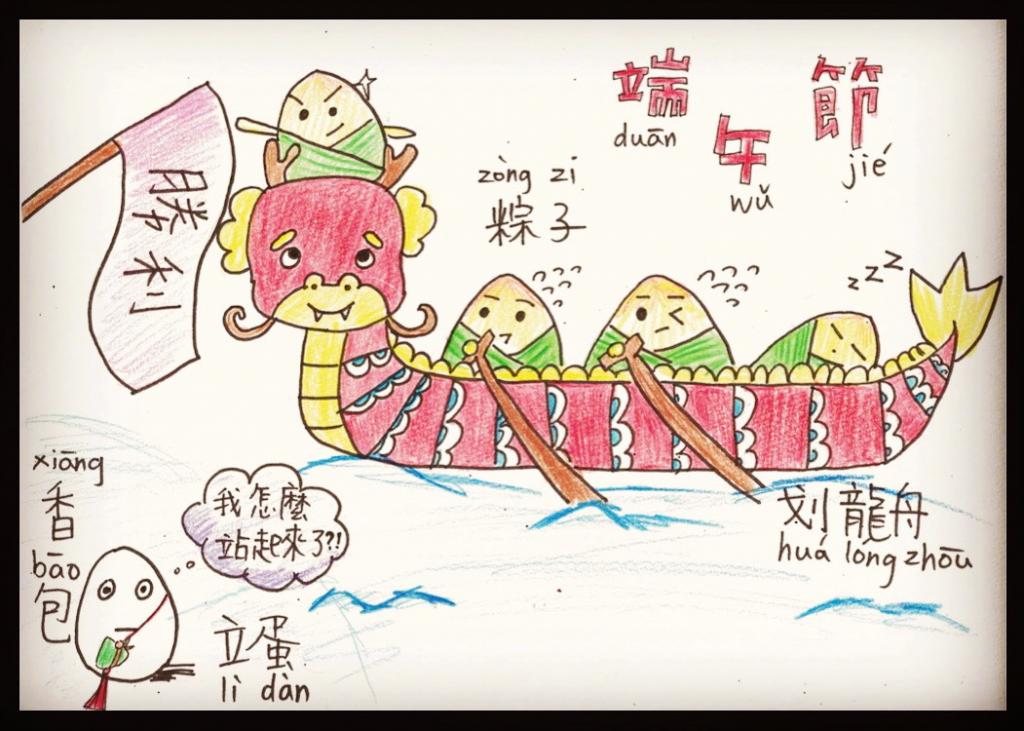 端午節
duān
wǔ
jié
zòng zi
粽子
勝利
xiāng
香
bāo
包
我怎麼
站起來了?!
立蛋
lì dàn
划龍舟
huá long zhōu
zzz